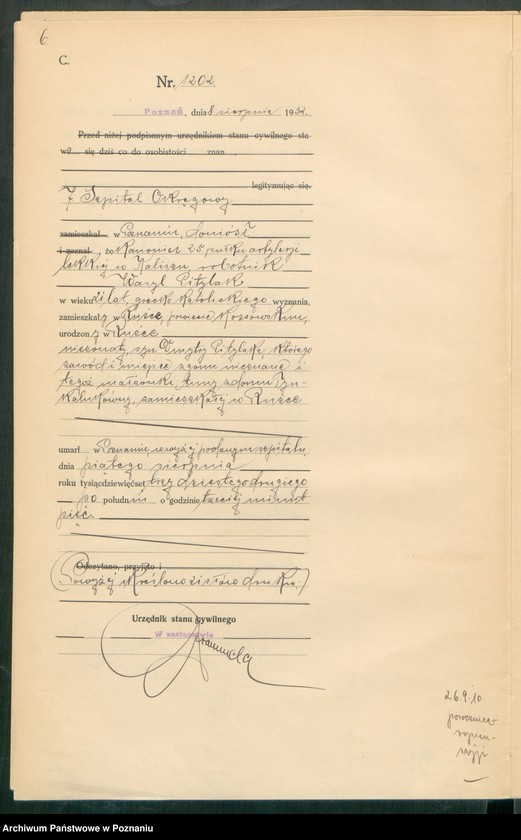 6
C.
Nr. 1202.
POZNAŃ, dnia 8 sierpnia 1932.
Przed niżej podpisanym urzędnikiem stanu cywilnego sta-
wił się dziś co do osobistości znan
legitymując się.
7. Szpital Okręgowy
zamieszkał w Poznaniu, doniósł
i zeznał, że Kanonier 25 pułku artylerji
lekkiej w Kaliszu, robotnik
Wasyl Pityliak
w wieku lat, grecko katolickiego wyznania,
zamieszkały w Ruśce, powiecie Kossowskim,
urodzony w Ruśce
nieżonaty, syn Dmytry Pityliaka, którego
zawód i miejsce zgonu nieznane i
tegoż małżonki Anny z domu
zamieszkałej w Ruśce
umarł w Poznaniu, w wyżej podanym szpitalu
dnia piątego sierpnia
roku tysiącdziewięćset trzydziestego drugiego
po południu o godzinie trzeciej minut
pięć.
Odczytano, przyjęto i
(Powyżej skreślono słów druku.)
Urzędnik stanu cywilnego
W zastępstwie
26.9.10.
Archiwum Państwowe w Poznaniu